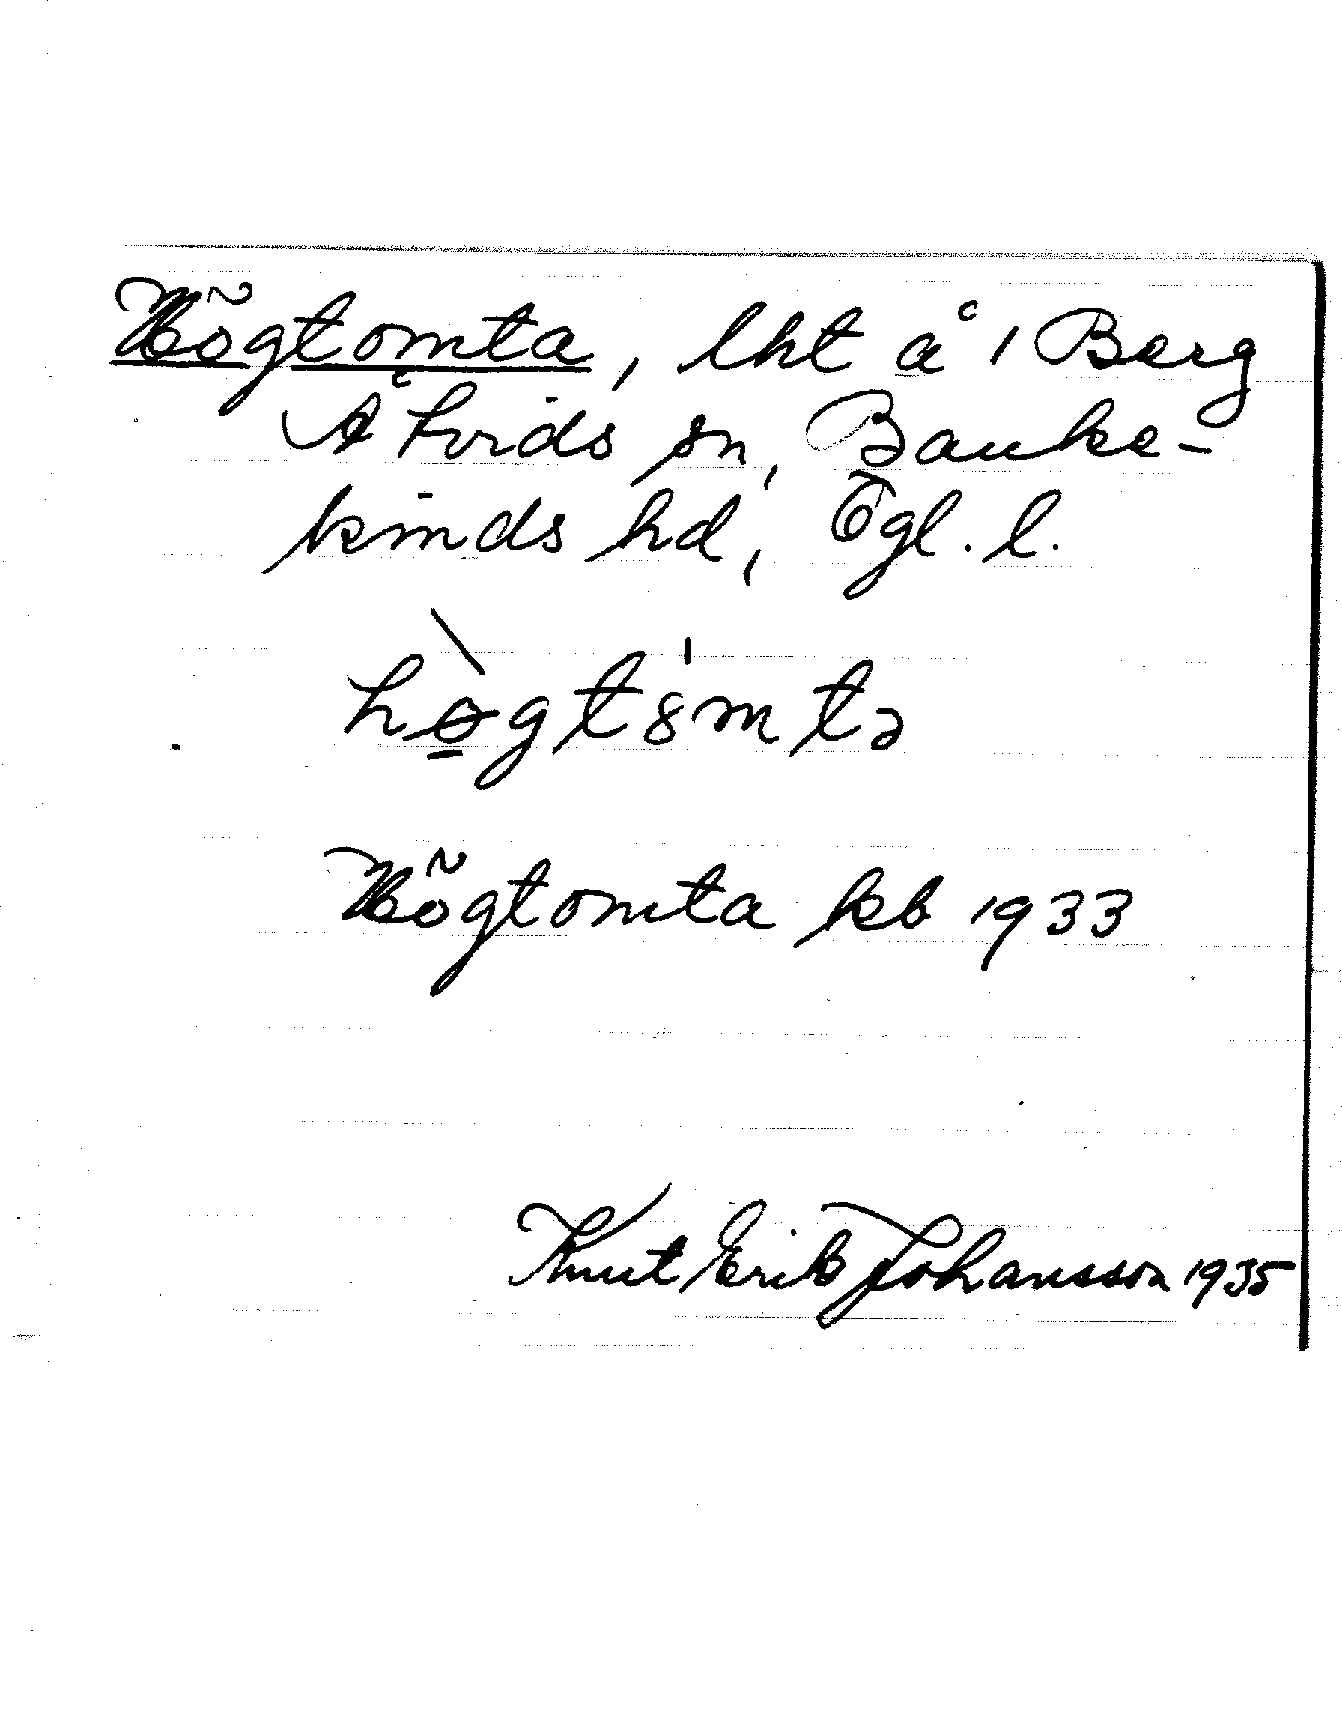 Högtomta, lht å 1 Berg
Åtvids sn, Banke-
kinds hd, Ögl. l.
Högtomta kb 1933
Knut Erik Johansson 1935